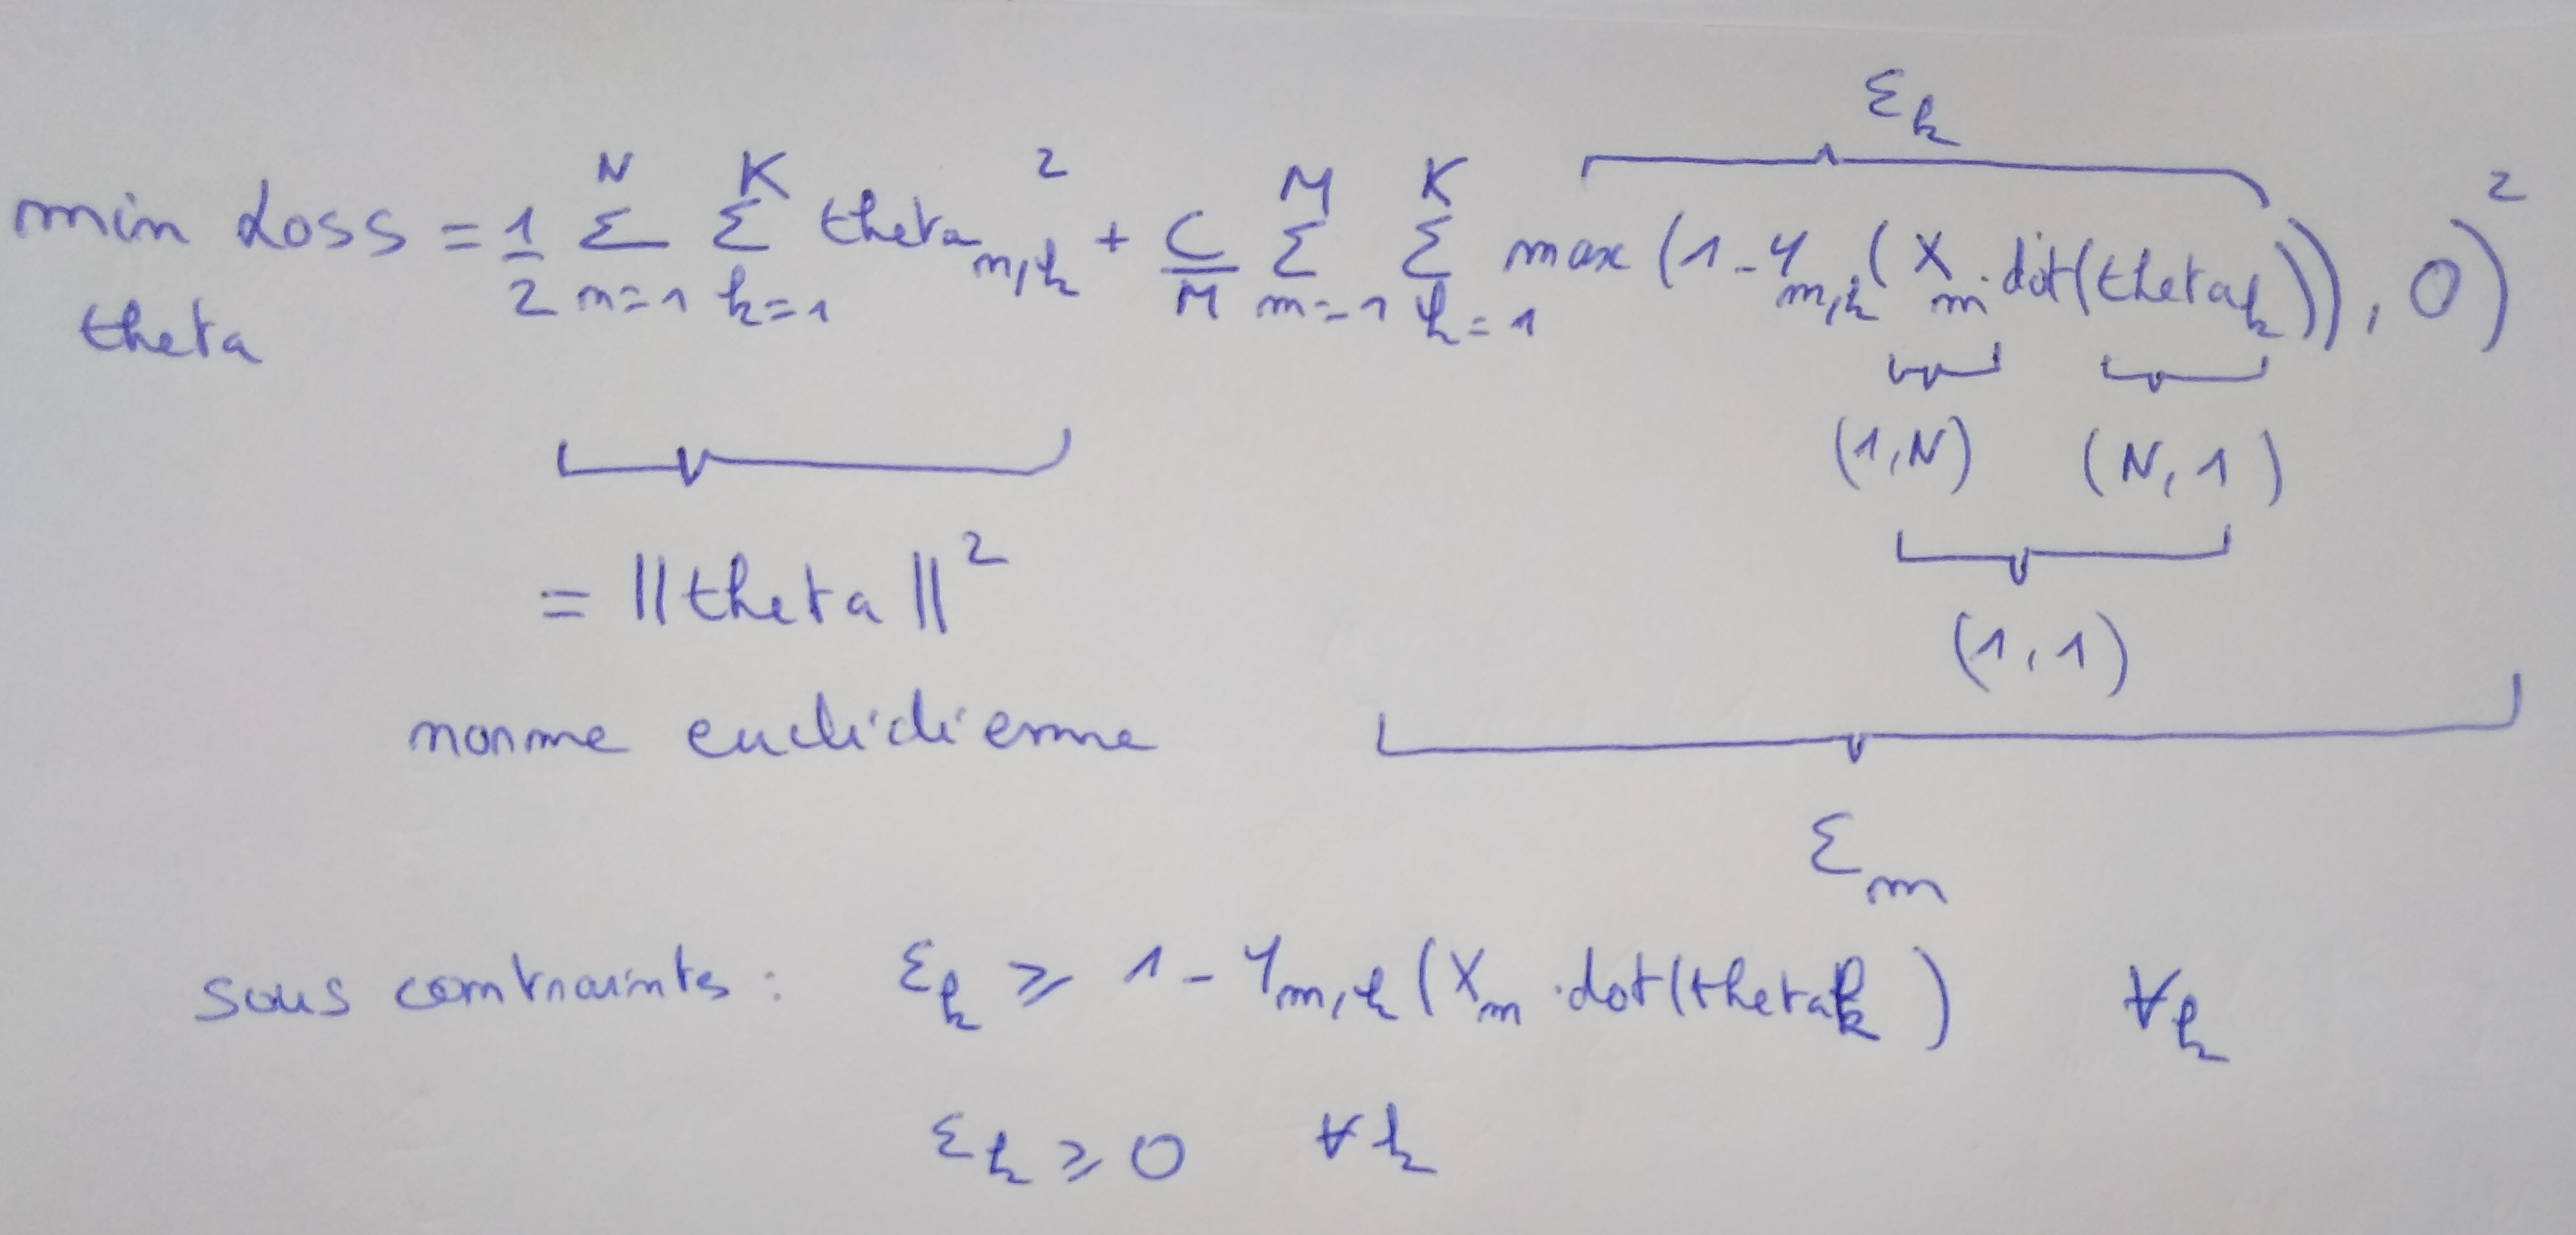 ε_k
min Loss = 1/2 Σ_{n=1}^{N} Σ_{k=1}^{K} theta_{n,k}^2 + C/M Σ_{m=1}^{M} Σ_{k=1}^{K} max(1 - Y_{m,k}(X_m.dot(theta_k)), 0)^2
theta
(1,N) (N,1)
= ||theta||^2
(1,1)
norme euclidienne
ε_m
sous contraintes : ε_k ⩾ 1 - Y_{m,k}(X_m.dot(theta_k) ∀k
ε_k ⩾ 0 ∀k